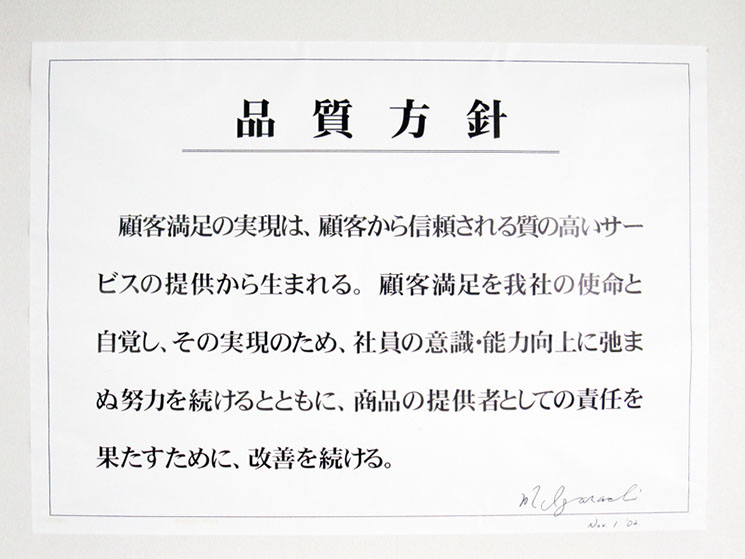 品質方針
顧客満足の実現は、顧客から信頼される質の高いサー
ビスの提供から生まれる。顧客満足を我社の使命と
自覚し、その実現のため、社員の意識・能力向上に弛ま
ぬ努力を続けるとともに、商品の提供者としての責任を
果たすために、改善を続ける。
M. Igarashi
Nov 1 '02